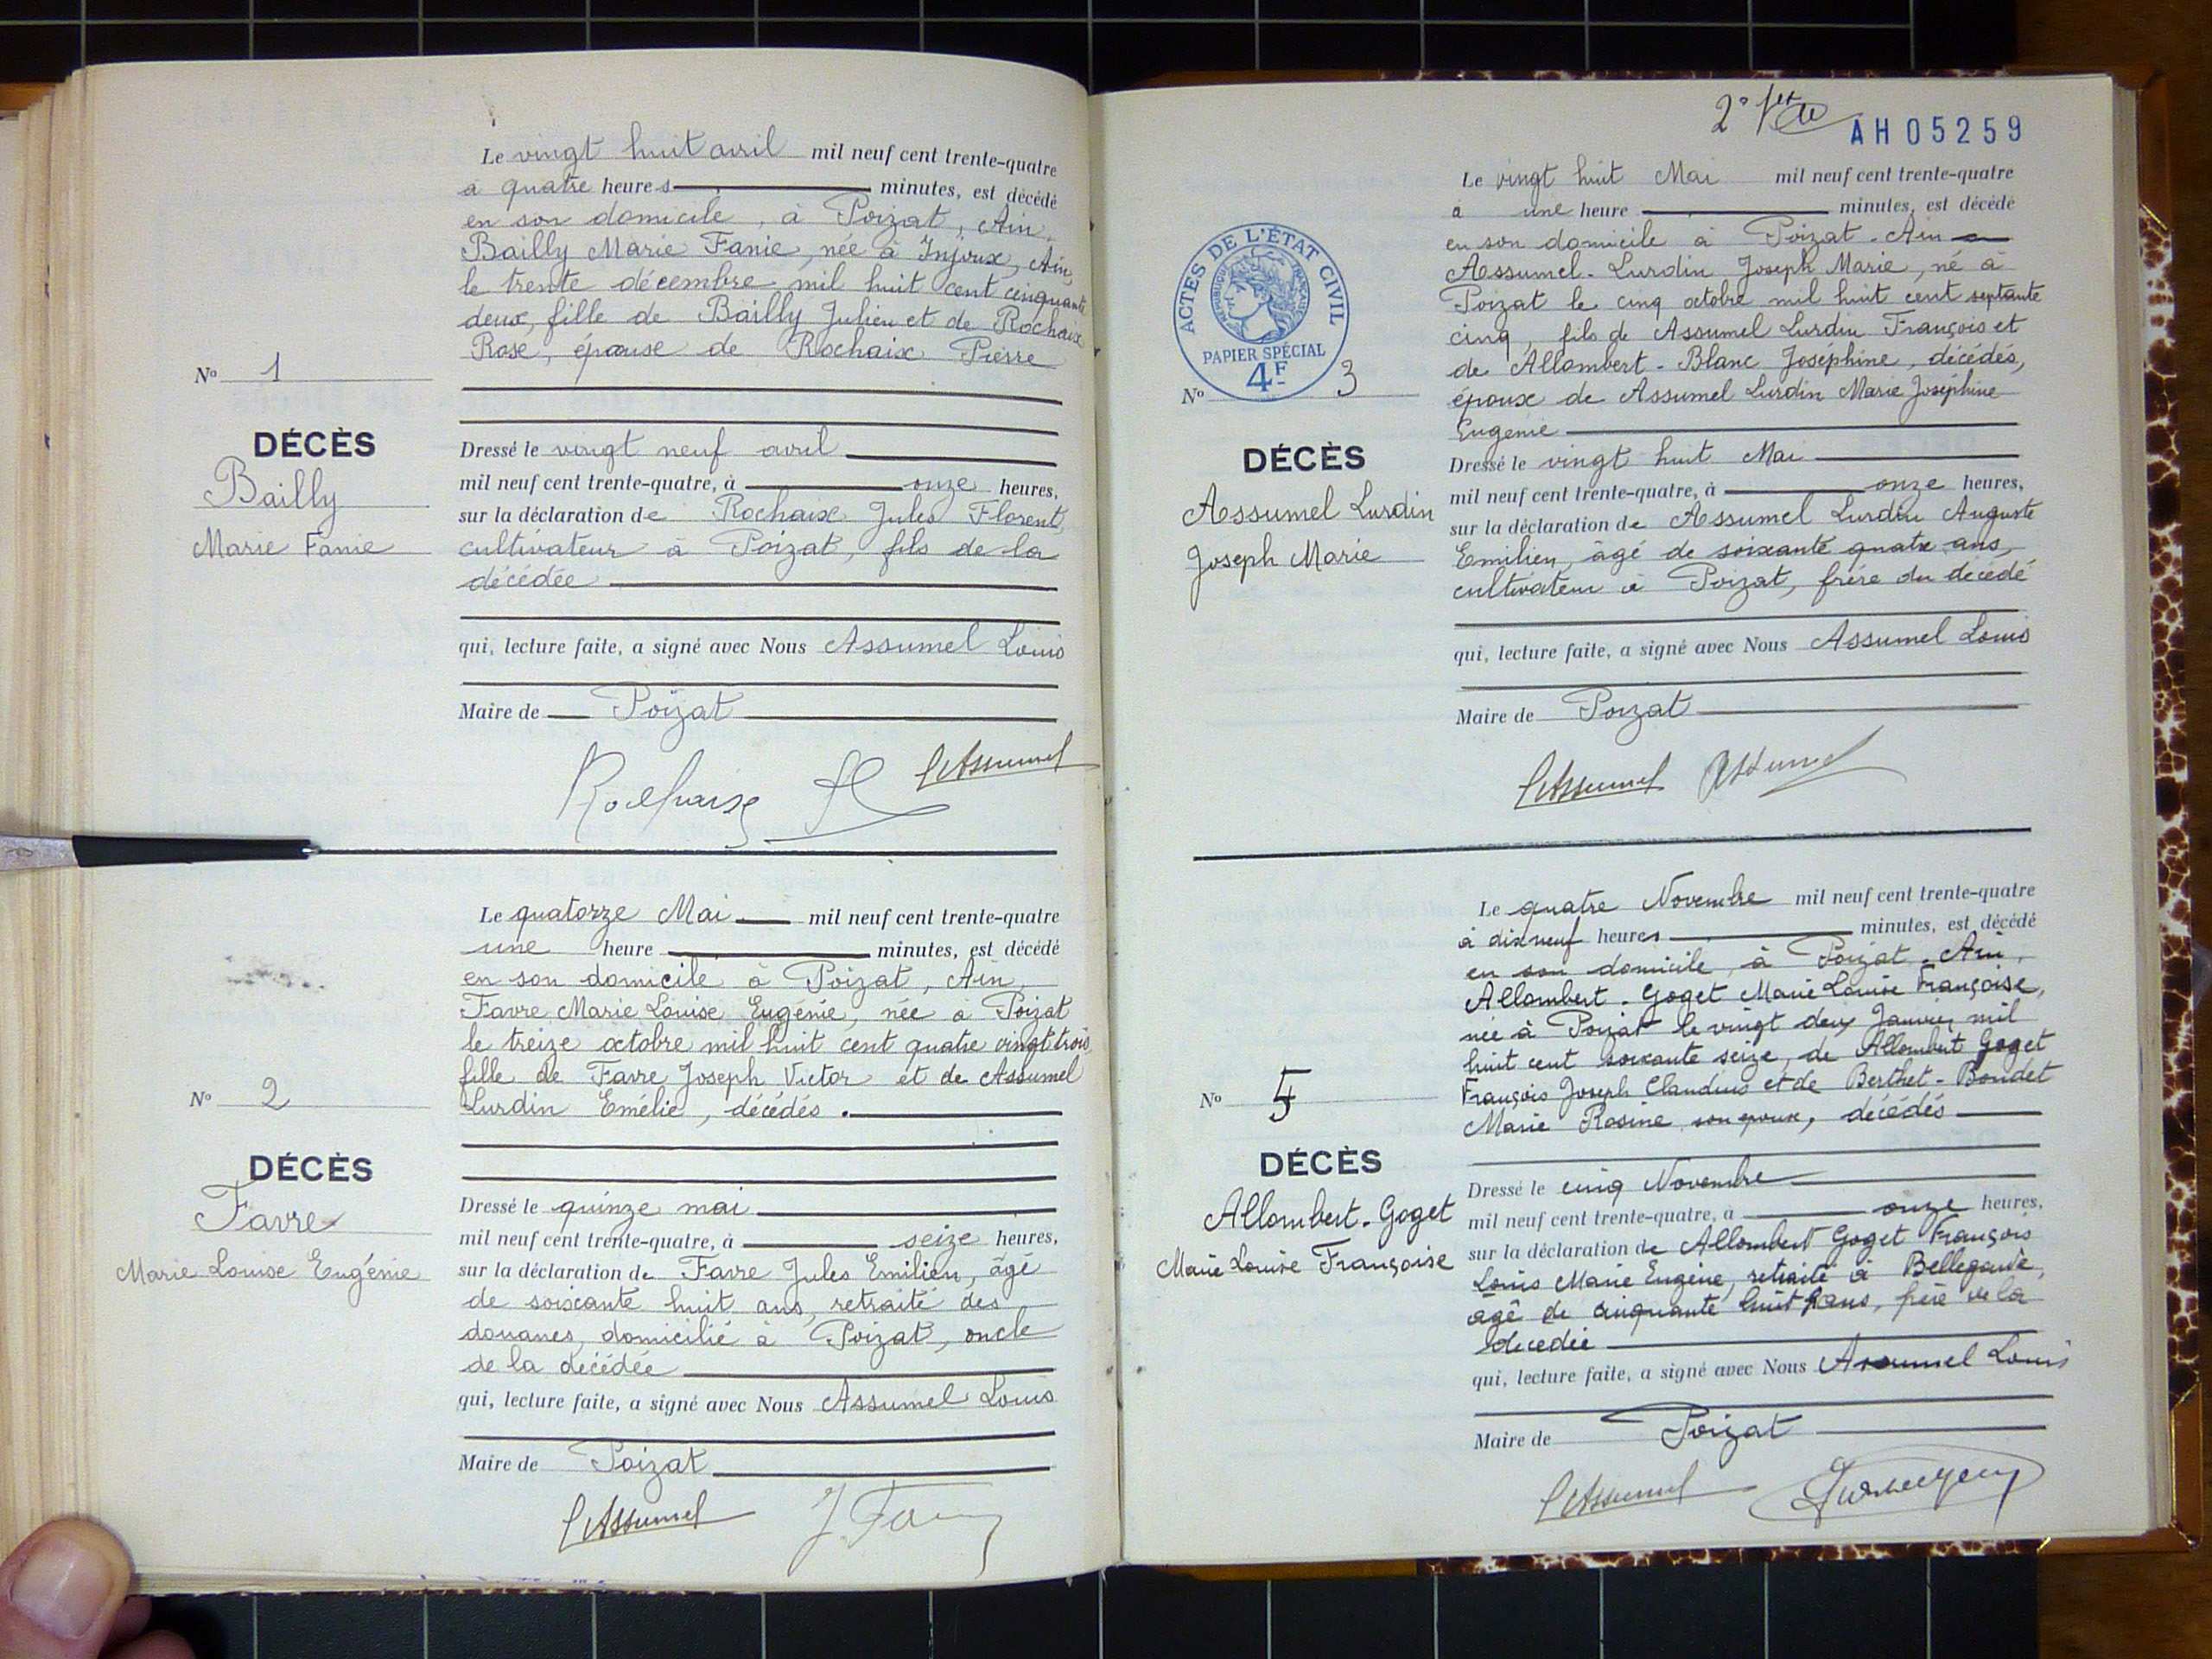 Le vingt huit avril mil neuf cent trente-quatre
à quatre heures minutes, est décédé
en son domicile, à Poizat, Ain,
Bailly Marie Fanie, née à Injoux, Ain,
le trente décembre mil huit cent cinquante
deux, fille de Bailly Julien et de Rochaix
Rose, épouse de Rochaix Pierre
No 1
DÉCÈS
Bailly
Marie Fanie
Dressé le vingt neuf avril
mil neuf cent trente-quatre, à onze heures,
sur la déclaration de Rochaix Jules Florent,
cultivateur à Poizat, fils de la
décédée
qui, lecture faite, a signé avec Nous Assumel Louis
Maire de Poizat
Rochaix LAssumel
Le quatorze Mai mil neuf cent trente-quatre
une heure minutes, est décédé
en son domicile à Poizat, Ain,
Favre Marie Louise Eugénie, née à Poizat
le treize octobre mil huit cent quatre vingt trois
fille de Favre Joseph Victor et de Assumel
Lurdin Emélie, décédés.
No 2
DÉCÈS
Favre
Marie Louise Eugénie
Dressé le quinze mai
mil neuf cent trente-quatre, à seize heures,
sur la déclaration de Favre Jules Emilien, âgé
de soixante huit ans, retraité des
douanes, domicilié à Poizat, oncle
de la décédée
qui, lecture faite, a signé avec Nous Assumel Louis
Maire de Poizat
LAssumel J. Favre
2e
AH05259
Le vingt huit Mai mil neuf cent trente-quatre
à une heure minutes, est décédé
en son domicile à Poizat - Ain
Assumel-Lurdin Joseph Marie, né à
Poizat le cinq octobre mil huit cent septante
cinq, fils de Assumel Lurdin François et
de Allombert-Blanc Joséphine, décédés,
époux de Assumel Lurdin Marie Joséphine
Eugénie
ACTES DE L'ÉTAT CIVIL
RÉPUBLIQUE FRANÇAISE
PAPIER SPÉCIAL
4F
No 3
DÉCÈS
Assumel Lurdin
Joseph Marie
Dressé le vingt huit Mai
mil neuf cent trente-quatre, à onze heures,
sur la déclaration de Assumel Lurdin Auguste
Emilien, âgé de soixante quatre ans,
cultivateur à Poizat, frère du décédé
qui, lecture faite, a signé avec Nous Assumel Louis
Maire de Poizat
LAssumel Assumel
Le quatre Novembre mil neuf cent trente-quatre
à dix neuf heures minutes, est décédé
en son domicile, à Poizat. Ain,
Allombert-Goget Marie Louise Françoise,
née à Poizat le vingt deux Janvier mil
huit cent soixante seize, de Allombert Goget
François Joseph Claudius et de Berthet-Bondet
Marie Rosine son époux, décédés
No
DÉCÈS
Allombert-Goget
Marie Louise Françoise
Dressé le cinq Novembre
mil neuf cent trente-quatre, à onze heures,
sur la déclaration de Allombert Goget François
Louis Marie Eugène, retraité à Bellegarde,
âgé de cinquante huit ans, frère de la
décédée
qui, lecture faite, a signé avec Nous Assumel Louis
Maire de Poizat
LAssumel